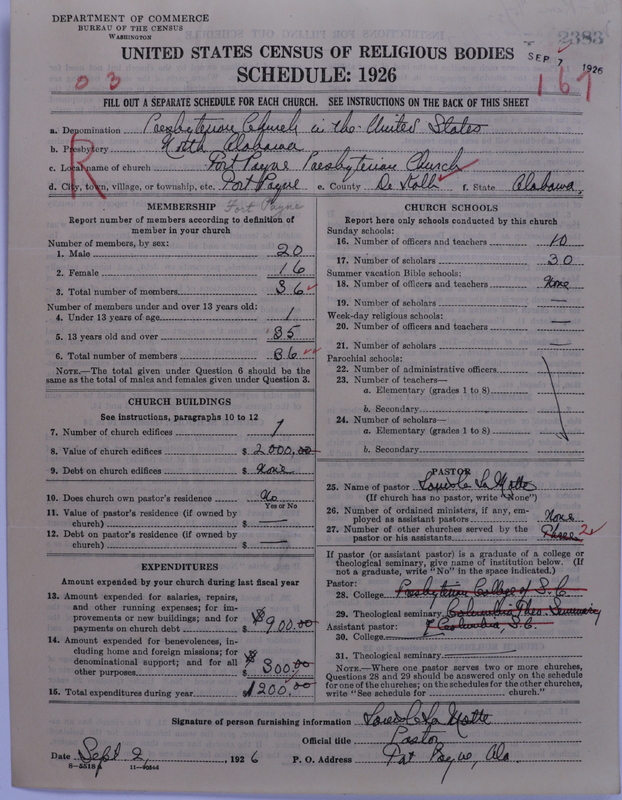 DEPARTMENT OF COMMERCE
BUREAU OF THE CENSUS
WASHINGTON
2383
SEP 7 1926
UNITED STATES CENSUS OF RELIGIOUS BODIES
SCHEDULE: 1926
0 3
167
FILL OUT A SEPARATE SCHEDULE FOR EACH CHURCH. SEE INSTRUCTIONS ON THE BACK OF THIS SHEET
R
a. Denomination Presbyterian Church in the United States
b. Presbytery North Alabama
c. Local name of church Fort Payne Presbyterian Church
d. City, town, village, or township, etc. Fort Payne e. County De Kalb f. State Alabama
Fort Payne
MEMBERSHIP
Report number of members according to definition of
member in your church
Number of members, by sex:
1. Male 20
2. Female 16
3. Total number of members 36
Number of members under and over 13 years old:
4. Under 13 years of age 1
5. 13 years old and over 35
6. Total number of members 36
NOTE.—The total given under Question 6 should be the
same as the total of males and females given under Question 3.
CHURCH BUILDINGS
See instructions, paragraphs 10 to 12
7. Number of church edifices 1
8. Value of church edifices $ 2000.00
9. Debt on church edifices $ None
10. Does church own pastor's residence No
Yes or No
11. Value of pastor's residence (if owned by
church) $ —
12. Debt on pastor's residence (if owned by
church) $ —
EXPENDITURES
Amount expended by your church during last fiscal year
13. Amount expended for salaries, repairs,
and other running expenses; for im-
provements or new buildings; and for
payments on church debt $ 900.00
14. Amount expended for benevolences, in-
cluding home and foreign missions; for
denominational support; and for all
other purposes $ 300.00
15. Total expenditures during year $ 1200.00
CHURCH SCHOOLS
Report here only schools conducted by this church
Sunday schools:
16. Number of officers and teachers 10
17. Number of scholars 30
Summer vacation Bible schools:
18. Number of officers and teachers None
19. Number of scholars —
Week-day religious schools:
20. Number of officers and teachers —
21. Number of scholars —
Parochial schools:
22. Number of administrative officers
23. Number of teachers—
a. Elementary (grades 1 to 8)
b. Secondary
24. Number of scholars—
a. Elementary (grades 1 to 8)
b. Secondary
PASTOR
25. Name of pastor Louis C. La Motte
(If church has no pastor, write "None")
26. Number of ordained ministers, if any, em-
ployed as assistant pastors None
27. Number of other churches served by the
pastor or his assistants Three 2
If pastor (or assistant pastor) is a graduate of a college or
theological seminary, give name of institution below. (If
not a graduate, write "No" in the space indicated.)
Pastor:
28. College Presbyterian College of S. C.
29. Theological seminary Columbia Theo. Seminary
Assistant pastor: Columbia, S.C.
30. College
31. Theological seminary
NOTE.—Where one pastor serves two or more churches,
Questions 28 and 29 should be answered only on the schedule
for one of the churches; on the schedules for the other churches,
write "See schedule for church."
Signature of person furnishing information Louis C. La Motte
Official title Pastor
Date Sept 2, 1926 P. O. Address Fort Payne, Ala.
8—5518 a